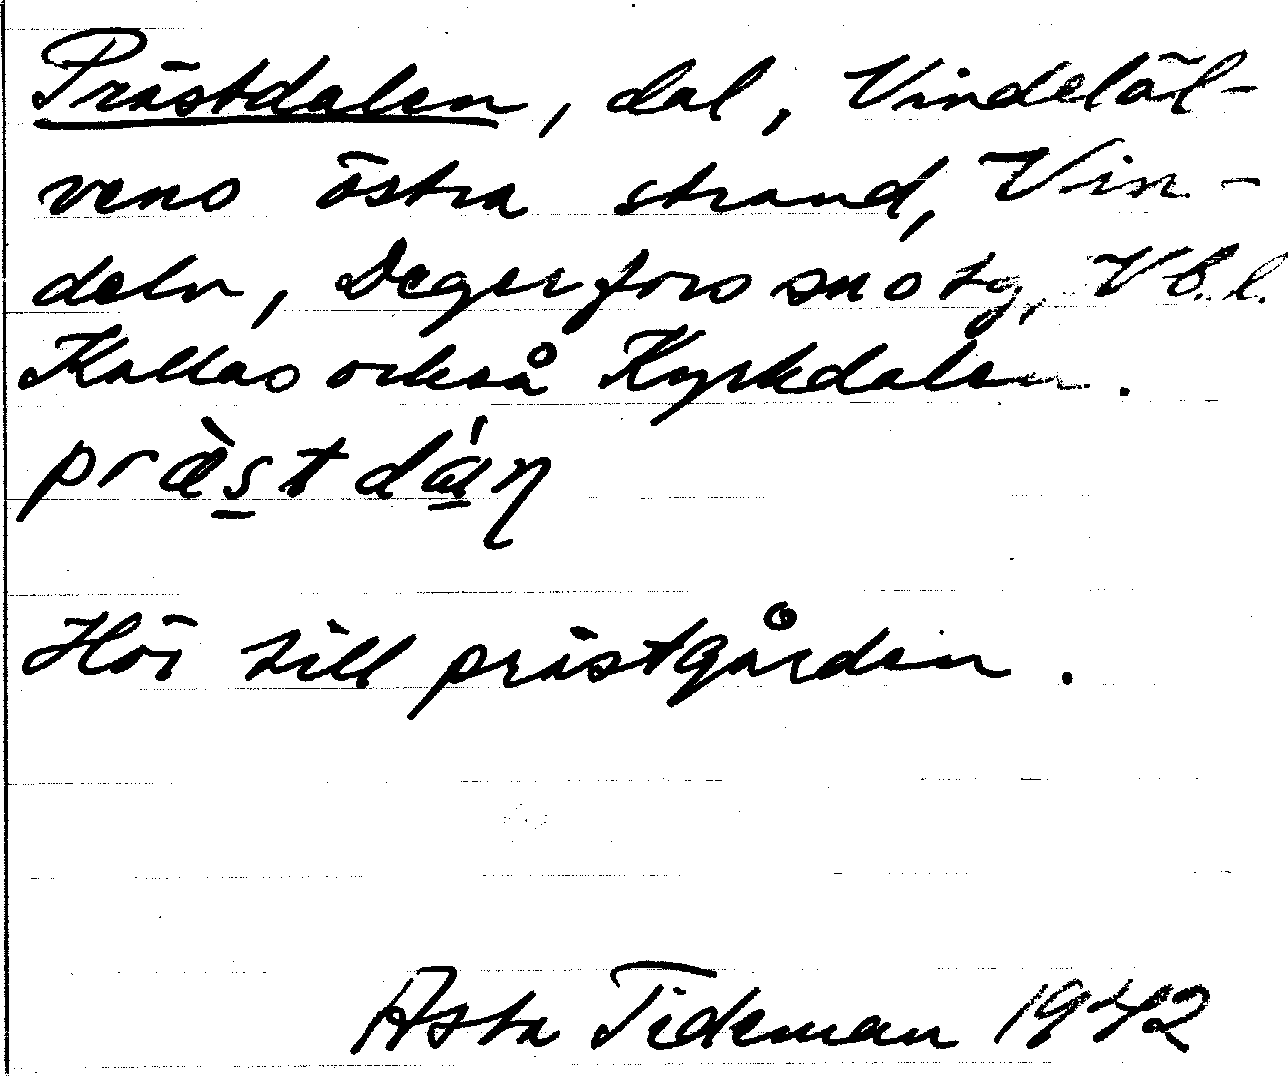 Prästdalen, dal, Vindeläl-
vens östra strand, Vin-
deln, Degerfors snötg, Vb.l.
Kallas också Kyrkdalen.
præ̀stdáŋ
Hör till prästgården.
Asta Tideman 1942